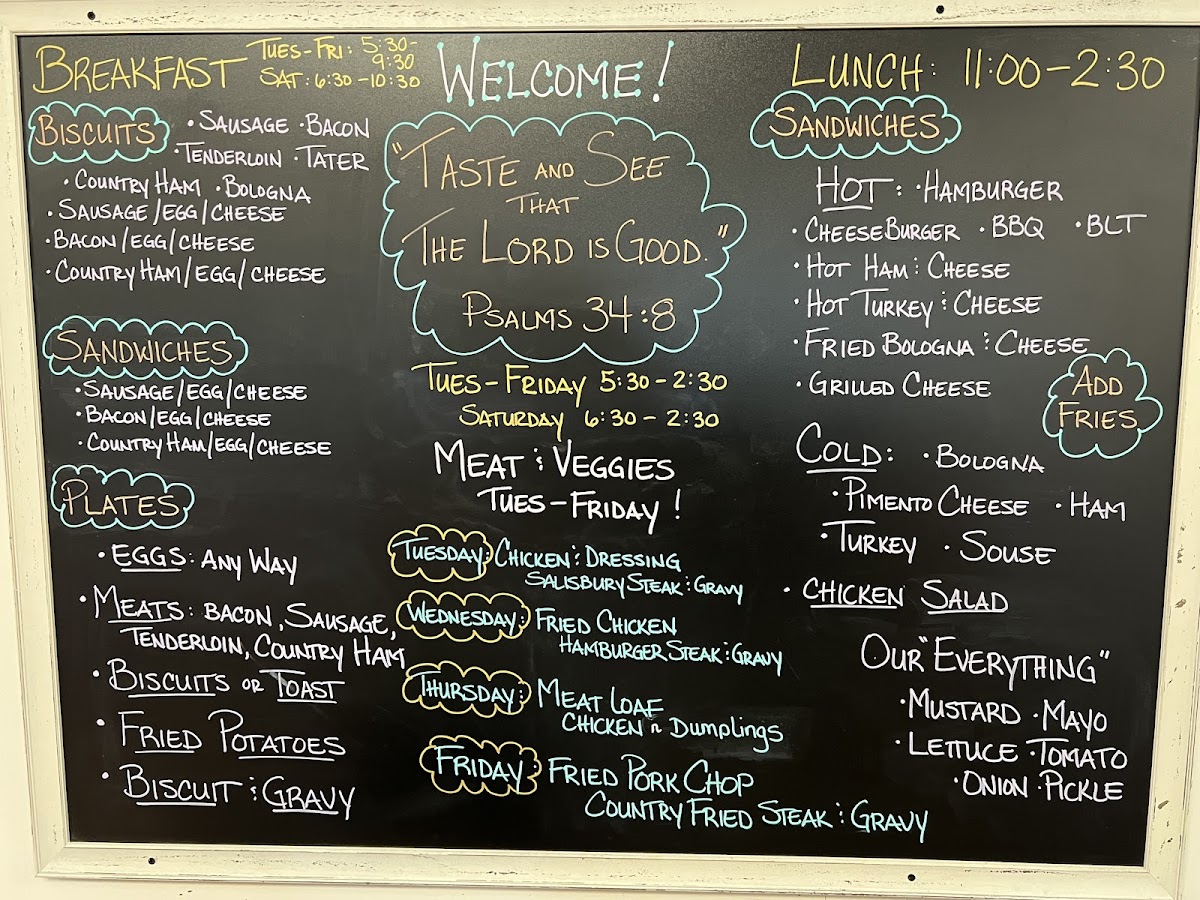 BREAKFAST TUES-FRI: 5:30-
9:30
SAT: 6:30-10:30
BISCUITS
• SAUSAGE • BACON
• TENDERLOIN • TATER
• COUNTRY HAM • BOLOGNA
• SAUSAGE/EGG/CHEESE
• BACON/EGG/CHEESE
• COUNTRY HAM/EGG/CHEESE
SANDWICHES
• SAUSAGE/EGG/CHEESE
• BACON/EGG/CHEESE
• COUNTRY HAM/EGG/CHEESE
PLATES
• EGGS: ANY WAY
• MEATS: BACON, SAUSAGE,
TENDERLOIN, COUNTRY HAM
• BISCUITS OR TOAST
• FRIED POTATOES
• BISCUIT & GRAVY
WELCOME!
"TASTE AND SEE
THAT
THE LORD IS GOOD."
PSALMS 34:8
TUES-FRIDAY 5:30-2:30
SATURDAY 6:30-2:30
MEAT & VEGGIES
TUES-FRIDAY!
TUESDAY: CHICKEN & DRESSING
SALISBURY STEAK & GRAVY
WEDNESDAY: FRIED CHICKEN
HAMBURGER STEAK & GRAVY
THURSDAY: MEAT LOAF
CHICKEN n DUMPLINGS
FRIDAY FRIED PORK CHOP
COUNTRY FRIED STEAK & GRAVY
LUNCH: 11:00-2:30
SANDWICHES
HOT: • HAMBURGER
• CHEESEBURGER • BBQ • BLT
• HOT HAM & CHEESE
• HOT TURKEY & CHEESE
• FRIED BOLOGNA & CHEESE
• GRILLED CHEESE
ADD
FRIES
COLD: • BOLOGNA
• PIMENTO CHEESE • HAM
• TURKEY • SOUSE
• CHICKEN SALAD
OUR "EVERYTHING"
• MUSTARD • MAYO
• LETTUCE • TOMATO
• ONION • PICKLE